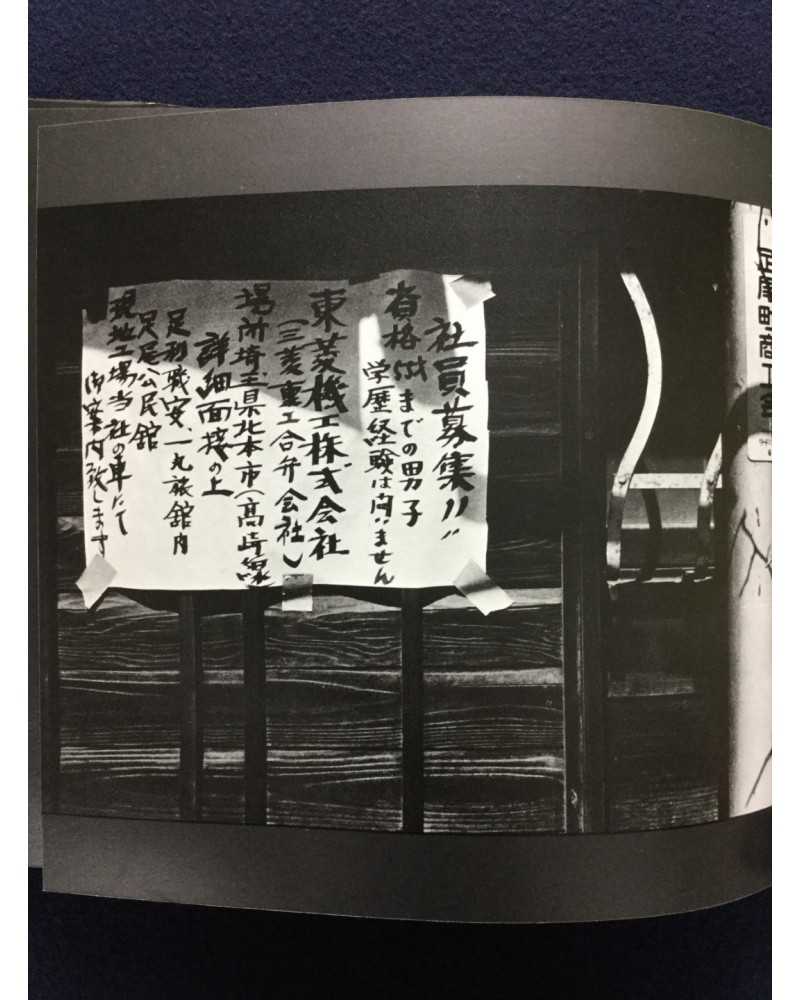 社員募集!!
資格 才までの男子
学歴経験は問いません
東菱機工株式会社
(三菱重工合弁会社)
場所埼玉県北本市(高崎線
詳細面接の上
足利職安、一丸旅館内
足尾公民館
現地工場当社の車にて
御案内致します
足尾町商工会